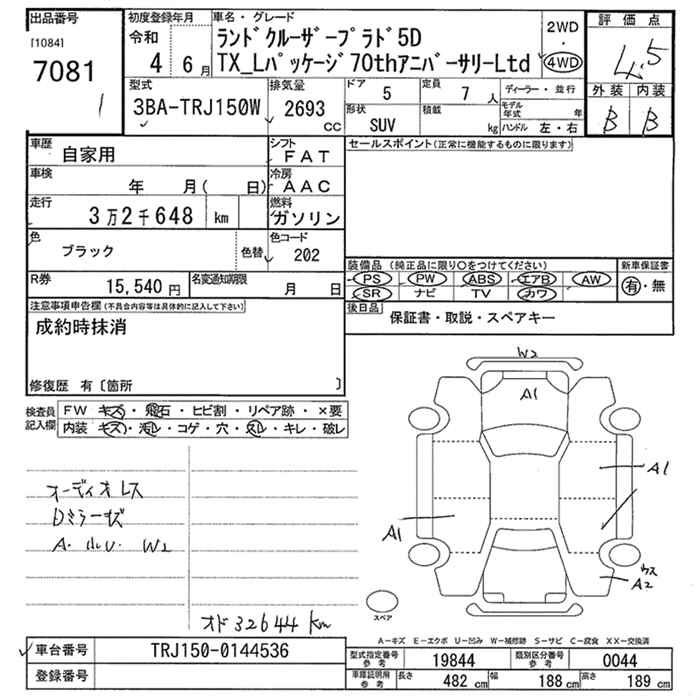 出品番号 初度登録年月 車名・グレード 2WD 評価点
[1084] 令和 ランドクルーザープラド5D ・
7081 4 6月 TX_Lパッケージ70thアニバーサリーLtd 4WD 4.5
1
型式 排気量 ドア 5 定員 7 人 ディーラー・並行 外装 内装
3BA-TRJ150W 2693 cc 形状 SUV 積載 kg モデル年式 年 B B
ハンドル 左・右
車歴 自家用 シフト FAT セールスポイント(正常に機能するものに限ります)
車検 年 月( 日) 冷房 AAC
走行 3万2千648 km 燃料 ガソリン
色 ブラック 色替 色コード 202
装備品 (純正品に限り○をつけてください) 新車保証書
R券 15,540円 名変通知期限 月 日 PS PW ABS エアB AW 有・無
SR ナビ TV カワ
注意事項申告欄(不具合内容等は具体的に記入して下さい) 後日品 保証書・取説・スペアキー
成約時抹消
修復歴 有〔箇所 〕
検査員 FW キズ・飛石・ヒビ割・リペア跡・×要
記入欄 内装 キズ・汚レ・コゲ・穴・スレ・キレ・破レ
W2
A1
A1
A1
A2
オーディオレス
Dミラーキズ
A. W2
オド 32644 Km
スペア
A-キズ E-エクボ U-凹み W-補修跡 S-サビ C-腐食 XX-交換済
車台番号 TRJ150-0144536 型式指定番号 参考 19844 類別区分番号 参考 0044
登録番号 車庫証明用 参考 長さ 482 cm 幅 188 cm 高さ 189 cm